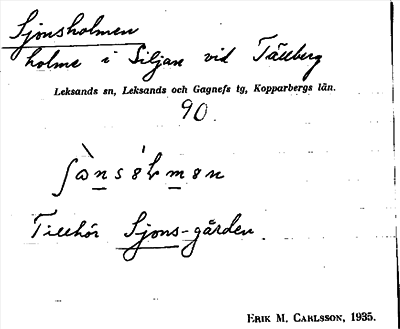 Sjonsholmen
holme i Siljan vid Tällberg
Leksands sn, Leksands och Gagnefs tg, Kopparbergs län.
90.
Tillhör Sjons-gården.
ERIK M. CARLSSON, 1935.